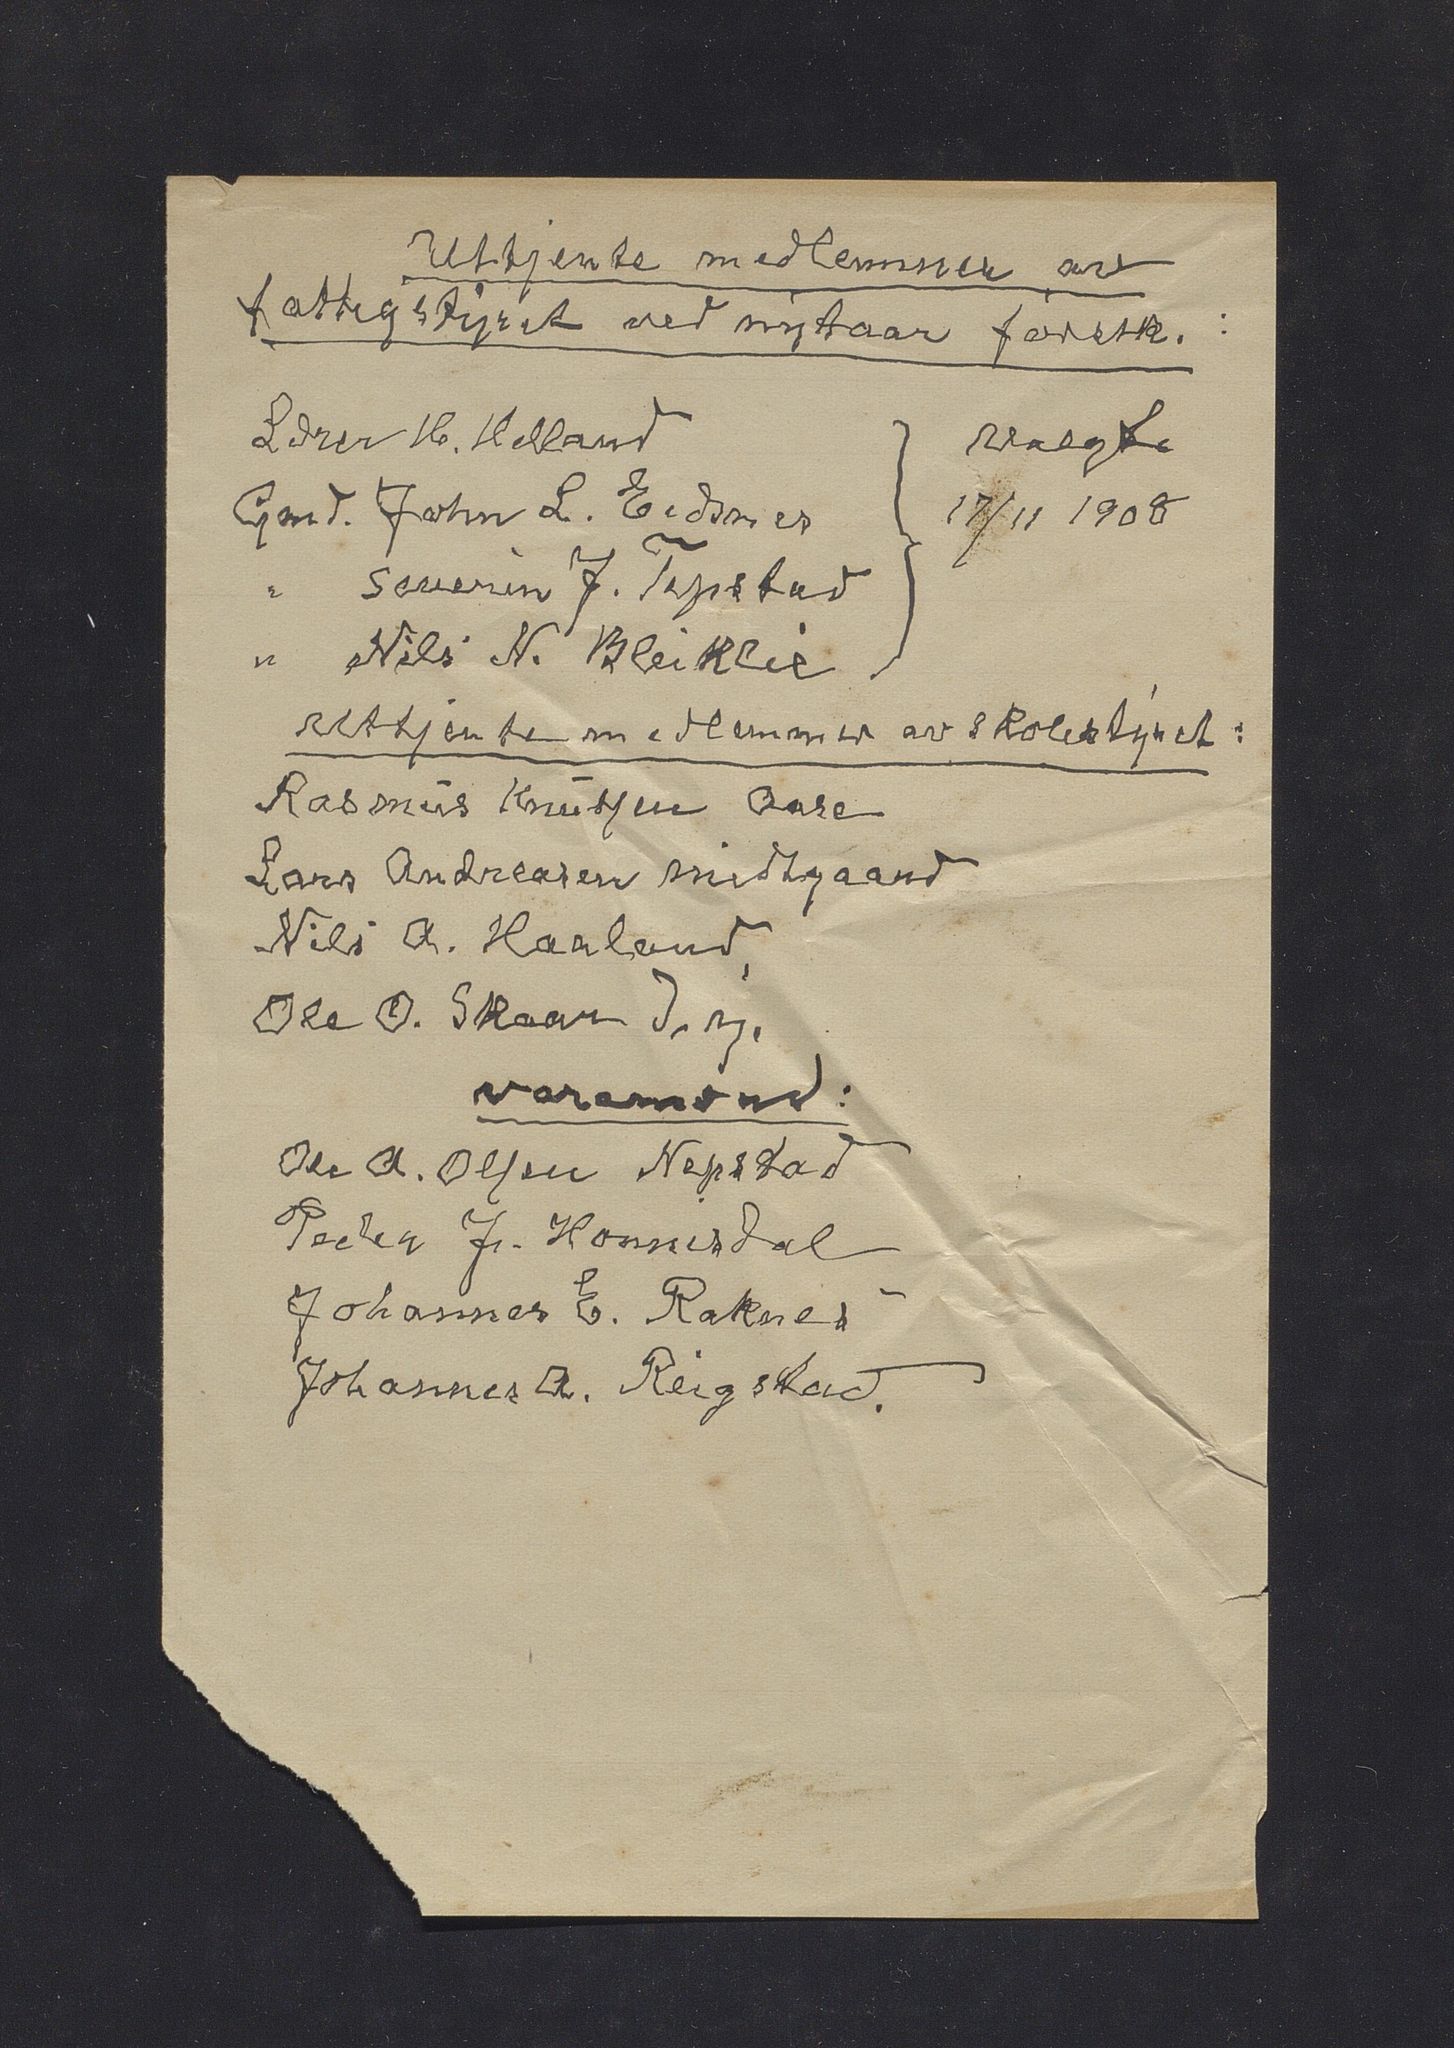 Uttjente medlemmer av
fattigstyret ved nytaar førstk. :
Lærer H. Helland } valgte
Gmd. John L. Eidsnes 17/11 1908
" Severin J. Tepstad
" Nils N. Bleiklie
Uttjente medlemmer av skolestyret :
Rasmus Knutsen Aase
Lars Andreasen Midtgaard
Nils A. Haaland,
Ole O. Skaar d. y.
varamænd :
Ole A. Olsen Nepstad
Peder J. Honnesdal
Johannes E. Raknes
Johannes A. Reigstad.